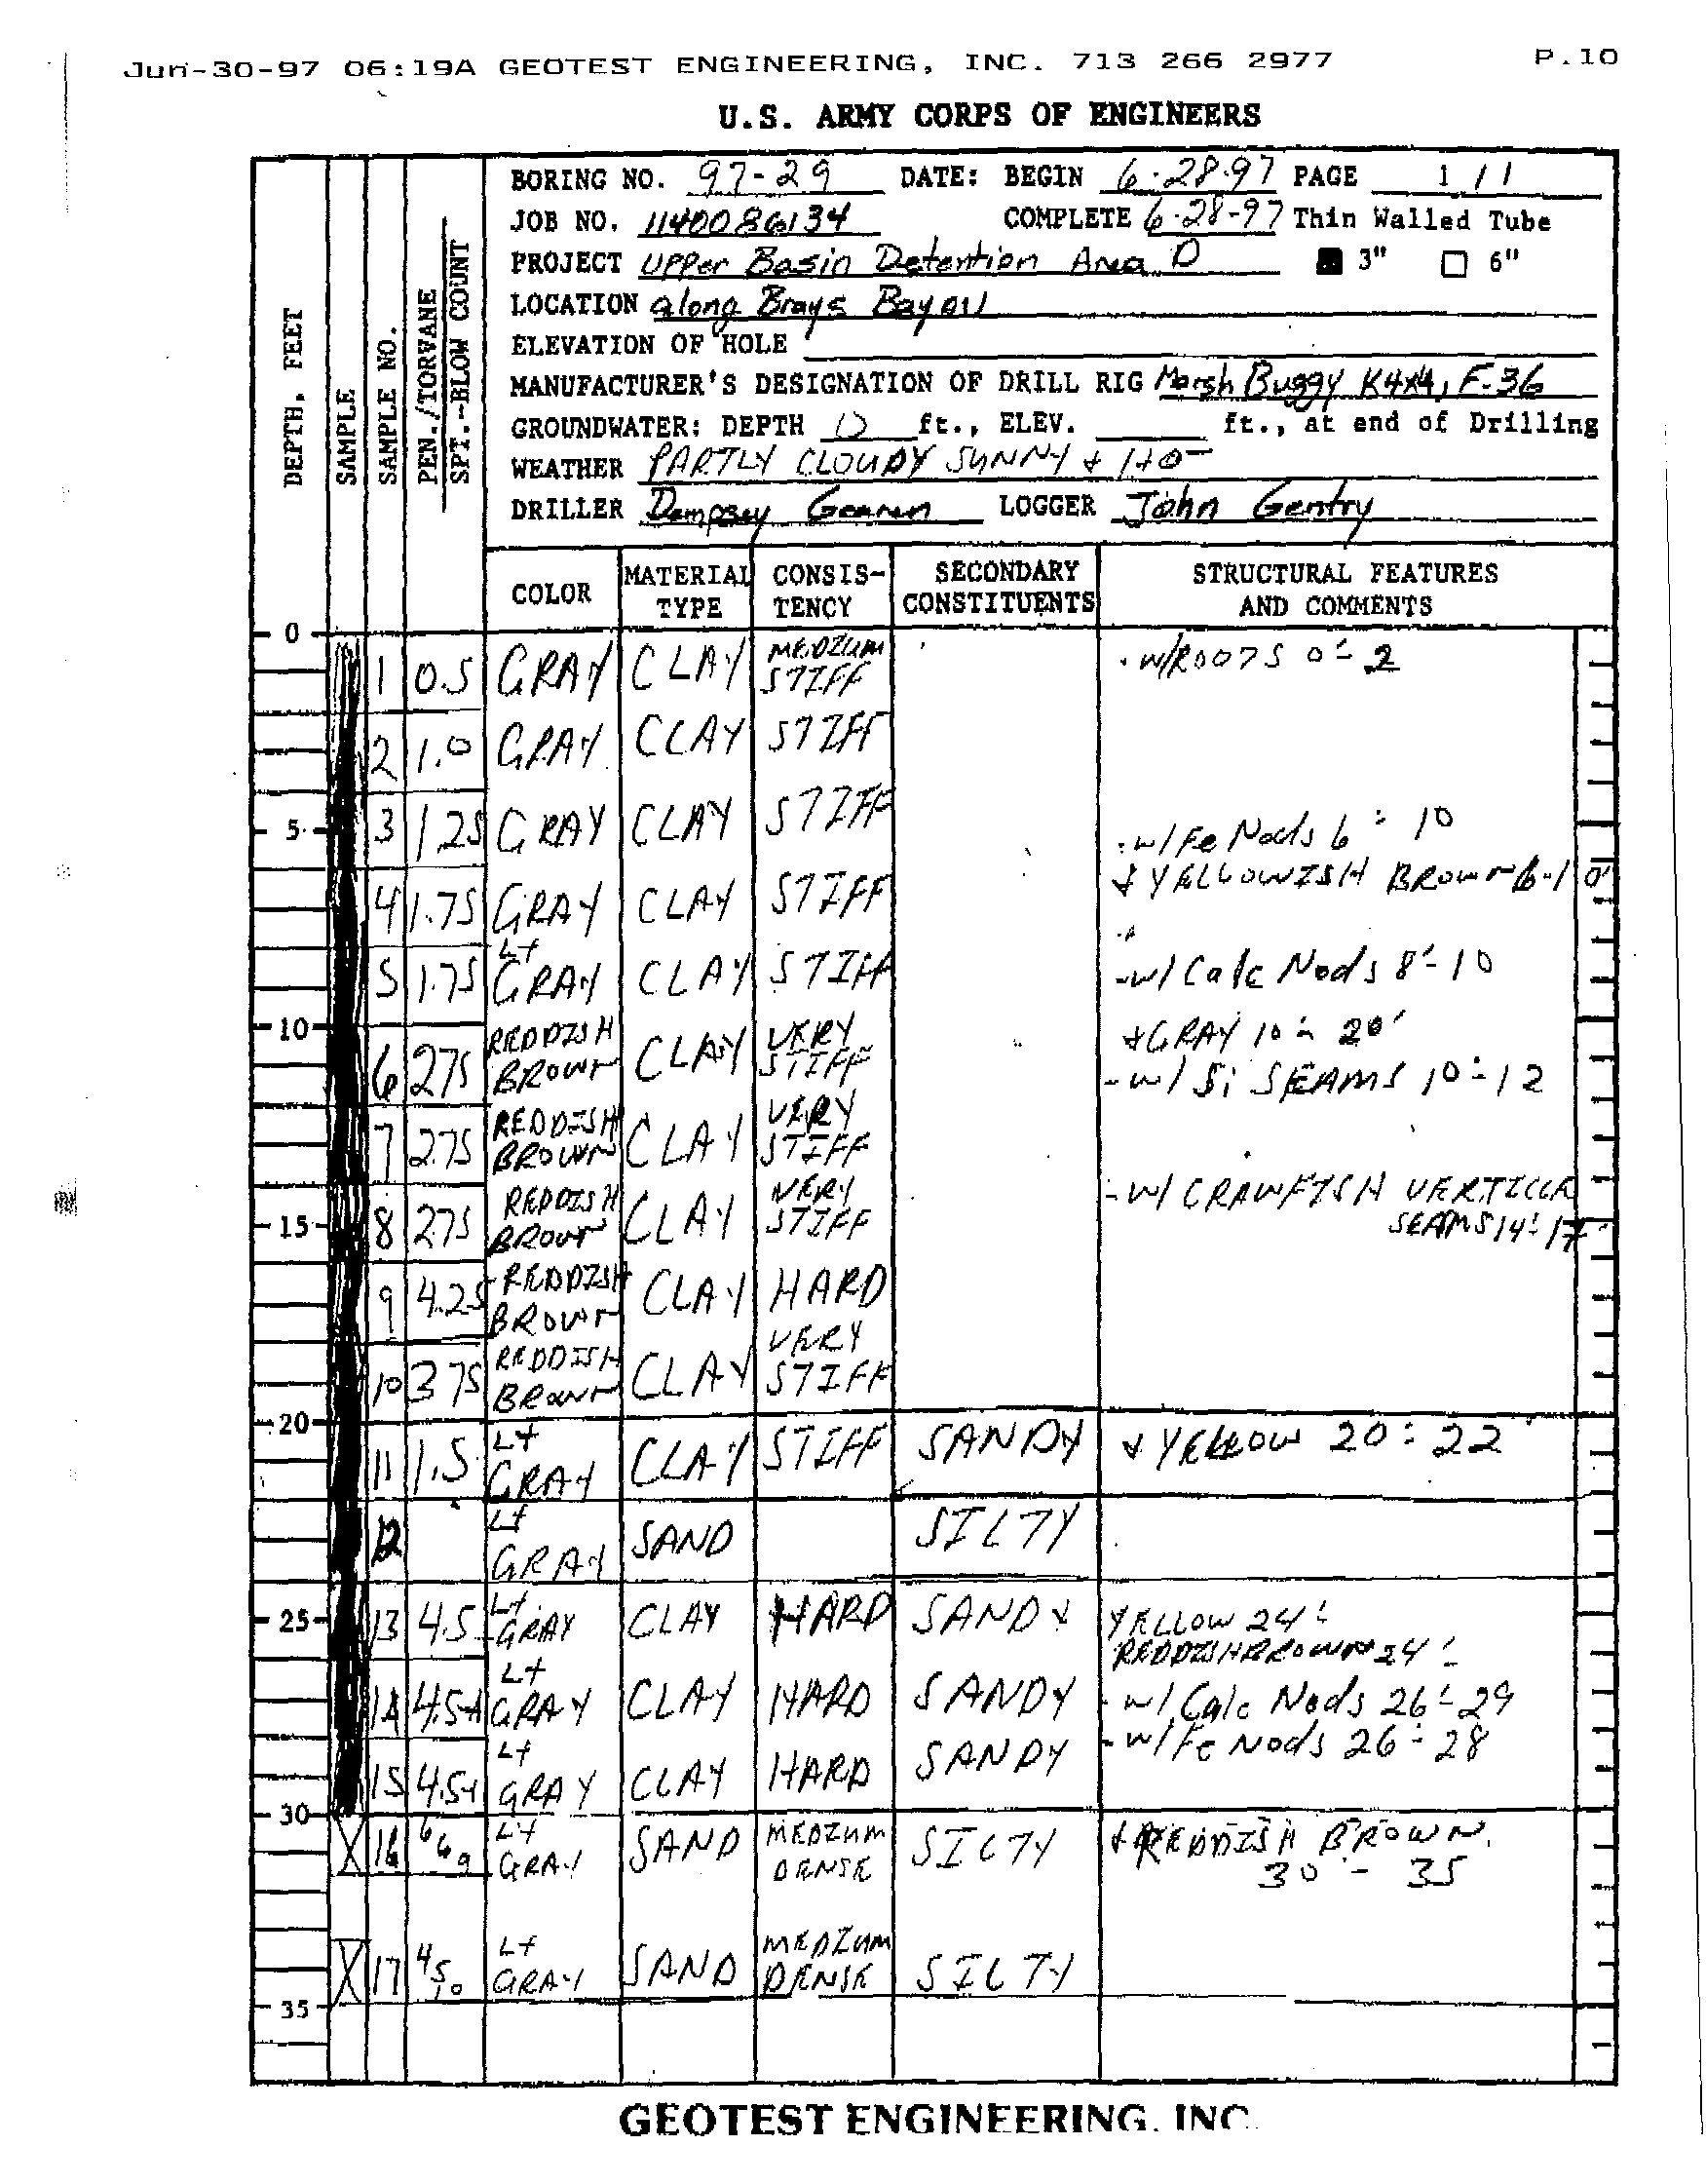 Jun-30-97 06:19A GEOTEST ENGINEERING, INC. 713 266 2977 P.10
U.S. ARMY CORPS OF ENGINEERS
DEPTH, FEET
SAMPLE
SAMPLE NO.
PEN./TORVANE
SPT.-BLOW COUNT
BORING NO. 97-29 DATE: BEGIN 6-28-97 PAGE 1 / 1
JOB NO. 1140086134 COMPLETE 6-28-97 Thin Walled Tube
PROJECT Upper Basin Detention Area D 3" 6"
LOCATION along Brays Bayou
ELEVATION OF HOLE
MANUFACTURER'S DESIGNATION OF DRILL RIG Marsh Buggy K4x4, F-36
GROUNDWATER: DEPTH ft., ELEV. ft., at end of Drilling
WEATHER PARTLY CLOUDY SUNNY +
DRILLER Dempsey LOGGER John Gentry
COLOR MATERIAL TYPE CONSIS-TENCY SECONDARY CONSTITUENTS STRUCTURAL FEATURES AND COMMENTS
0
1 0.5 GRAY CLAY MEDIUM STIFF - w/ROOTS 0'- 2
2 1.0 GRAY CLAY STIFF
5 3 1.25 GRAY CLAY STIFF - w/Fe Nods 6'- 10
+ YELLOWISH BROWN 6-10'
4 1.75 GRAY CLAY STIFF
5 1.75 Lt GRAY CLAY STIFF - w/ Calc Nods 8'- 10
10 + GRAY 10'- 20'
6 2.75 REDDISH BROWN CLAY VERY STIFF - w/ Si SEAMS 10'- 12
7 2.75 REDDISH BROWN CLAY VERY STIFF
15 8 2.75 REDDISH BROWN CLAY VERY STIFF - w/ CRAWFISH VERTICLE
SEAMS 14'- 17
9 4.25 REDDISH BROWN CLAY HARD
10 3.75 REDDISH BROWN CLAY VERY STIFF
20
11 1.5 Lt GRAY CLAY STIFF SANDY + YELLOW 20'- 22
12 Lt GRAY SAND SILTY
25 13 4.5 Lt GRAY CLAY HARD SANDY YELLOW 24'-
REDDISH BROWN 24'-
14 4.5+ Lt GRAY CLAY HARD SANDY - w/ Calc Nods 26'- 29
- w/Fe Nods 26'- 28
15 4.5+ Lt GRAY CLAY HARD SANDY
30
16 6 6 9 Lt GRAY SAND MEDIUM DENSE SILTY + REDDISH BROWN
30 - 35
17 4 5 10 Lt GRAY SAND MEDIUM DENSE SILTY
35
GEOTEST ENGINEERING, INC.